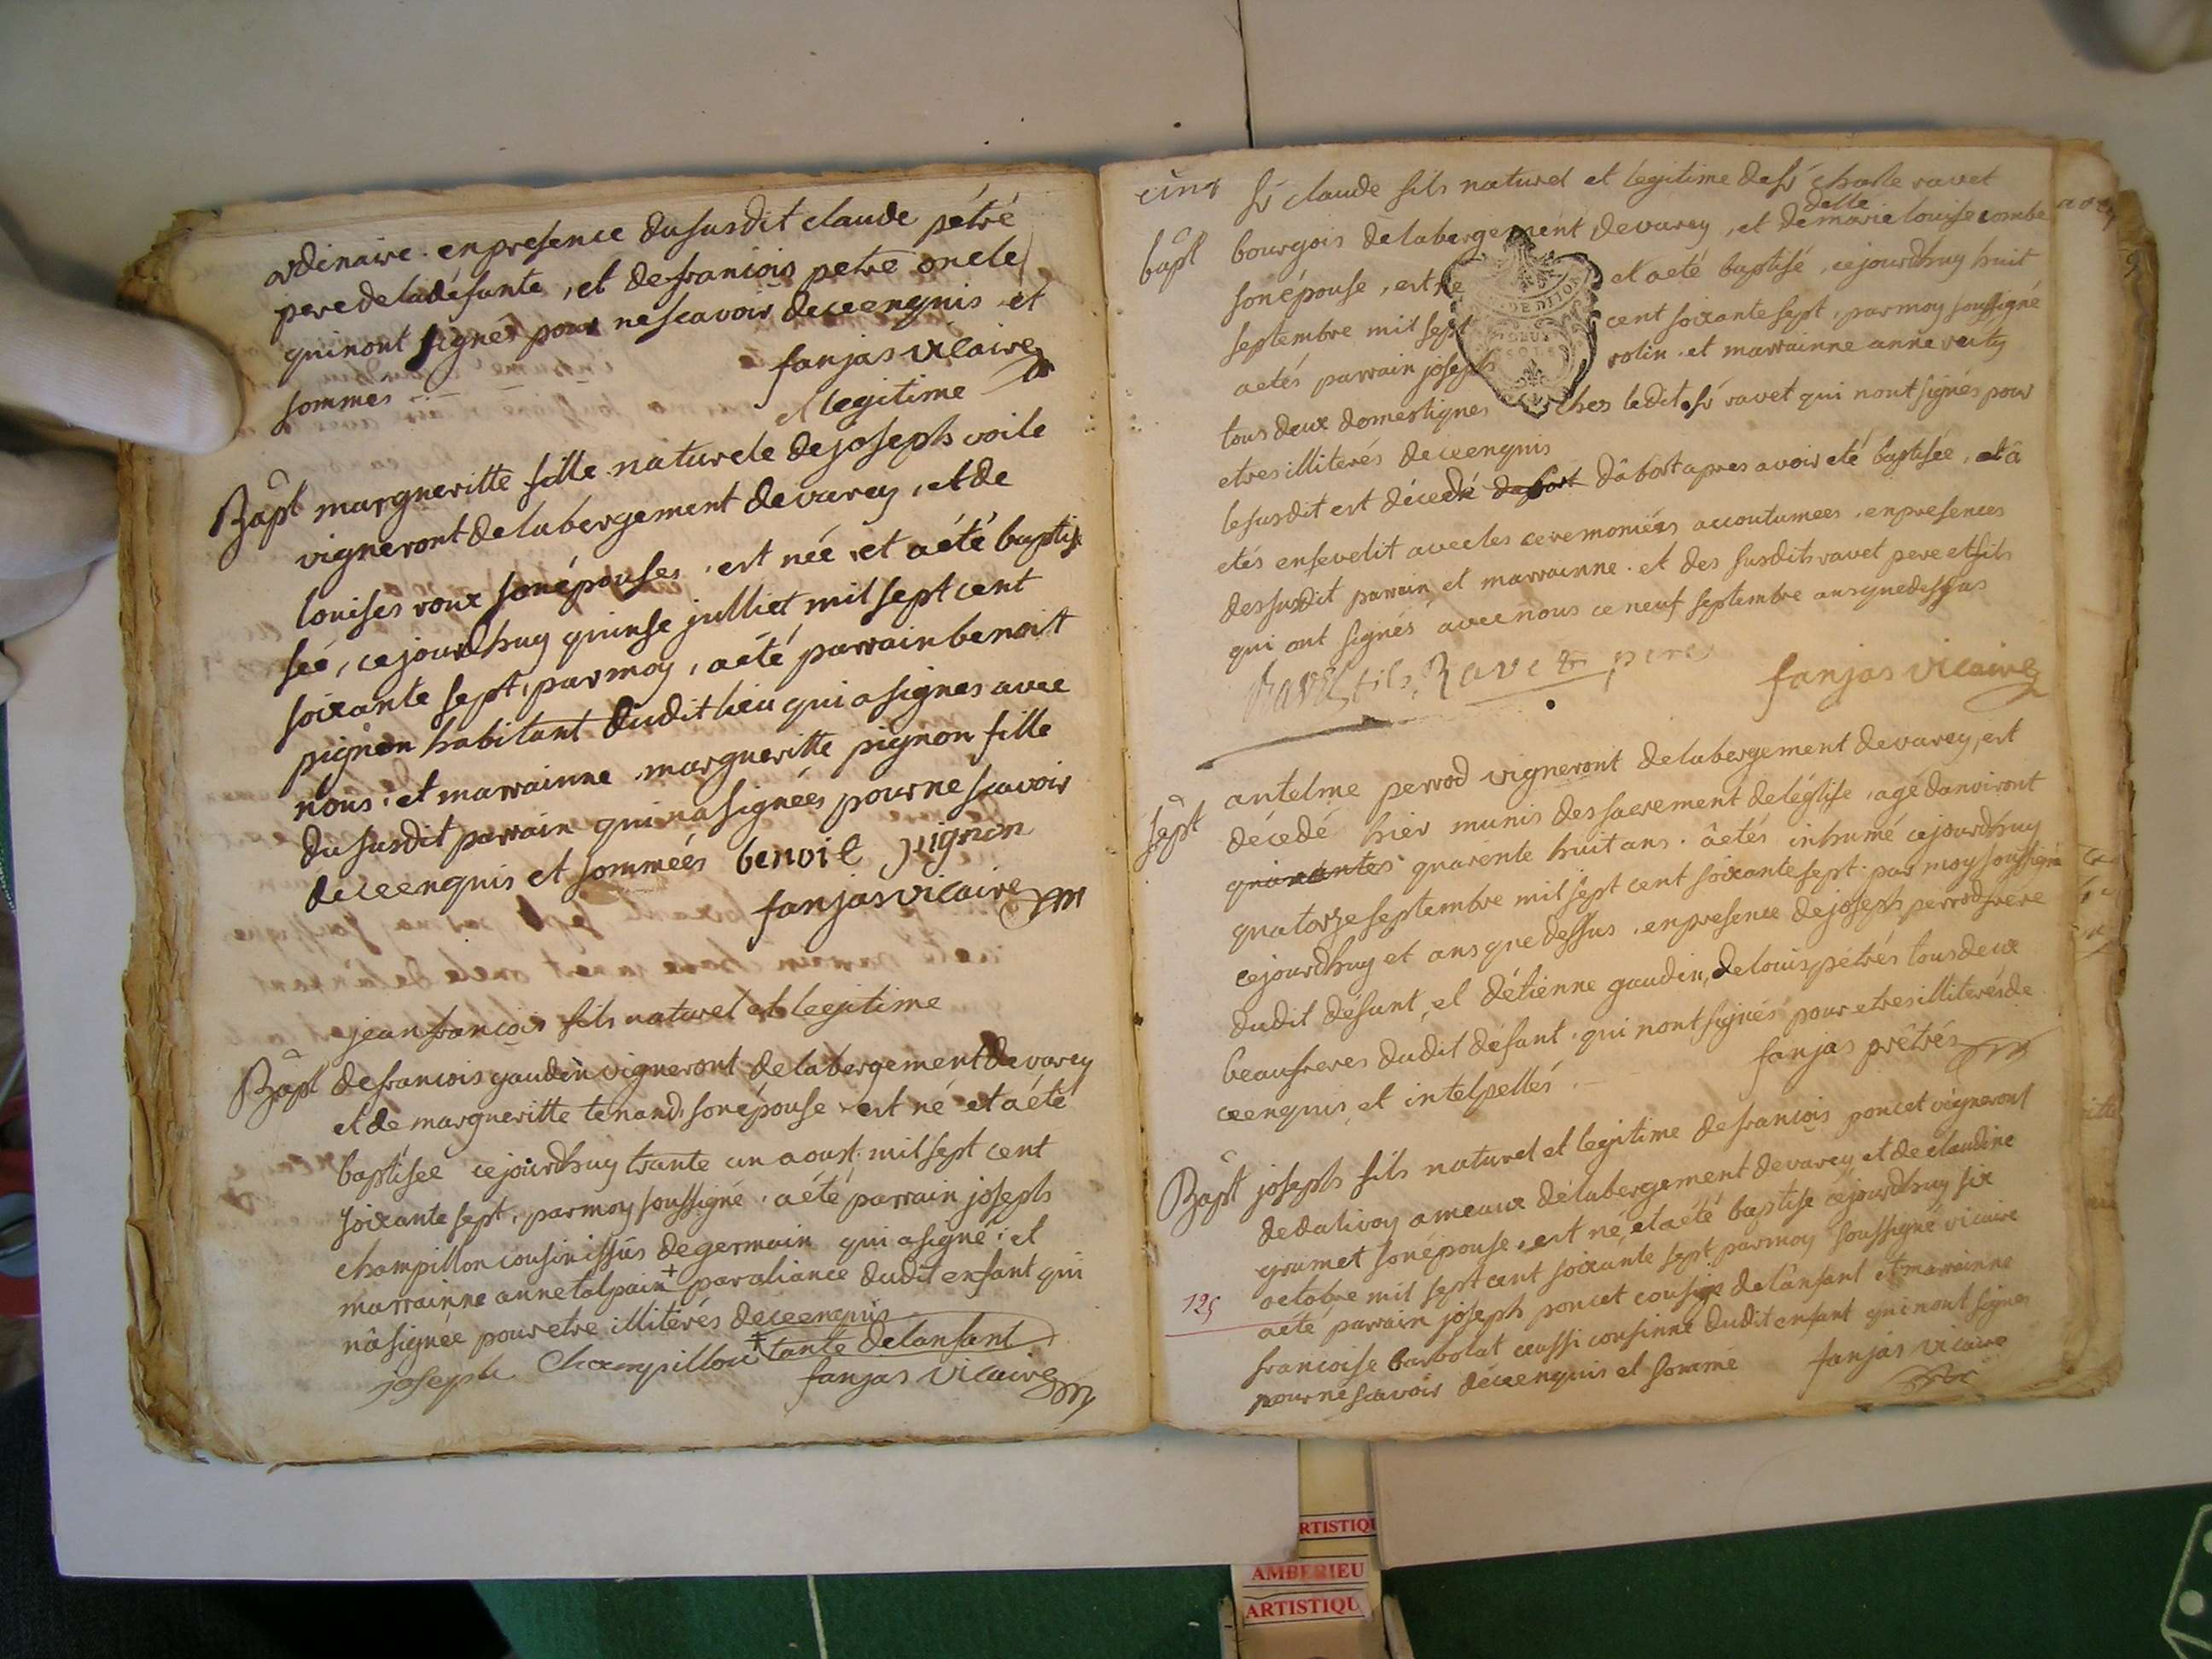 ordinaire. enpresence dususdit claude pétré
peredeladéfunte, et defrancois petre oncle
quinont signés pour nescavoir deceenquis et
sommes
fanjas vicaire
et legitime
Bapt margueritte fille naturele de joseph voile
vigneront delabergement devarey, et de
louises roux sonépouses. est née et aété bapti
séé, cejourdhuy quinse julliet mil sept cent
soixante sept, parmoy, aété parrain benoit
pignon habitant dudit lieu qui a signes avec
nous. et marrainne margueritte pignon fille
du susdit parrain qui na signées pour ne scavoir
deceenquis et sommées benoit pignon
fanjas vicaire
jean francois fils naturel et legitime
Bapt defrancois gaudin vigneront delabergement devarey
et de margueritte tenand sonépouse est né et aété
baptisee cejourdhuy trante un aoust mil sept cent
soixante sept, parmoy soussigné. aété parrain joseph
champillon cousin issus degermain qui a signé. et
marrainne anne talpain + par aliance dudit enfant qui
nâ signée pour etre illitérés deceenquis
+ tante delanfant
joseph Champillon
fanjas vicaire
cinq sr claude fils naturel et legitime de sr charle ravet
delle
bapt bourgois delabergement devarey, et de marie louise combe
sonépouse, est né et aeté baptisé, cejourdhuy huit
septembre mil sept cent soixante sept, parmoy soussigné
aetés parrain joseph rolin. et marrainne anne
tous deux domestiques ches ledit sr ravet qui nont signés pour
etres illiterés deceenquis
lesusdit est décedé dabort dâbort apres avoir eté baptisée, et â
etés ensevelit avec les ceremoniées accoutumees. en presences
dessusdit parrain et marrainne. et des susdits ravet pere et fils
qui ont signés avec nous ce neuf septembre ansquedessus
Ravet fils Ravet pere
fanjas vicaire
antelme perrod vigneront delabergement devarey, est
sept décedé hier munis dessacrement deléglise, agé danviront
quarantes quarente huit ans. âetés inhumé cejourdhuy
quatorze septembre mil sept cent soixante sept. par moy soussigné
cejourdhuy et ans que dessus. en presence de joseph perrod frere
dudit défunt, et détienne gaudin, de louis pétrés tous deux
beaufreres dudit défunt. qui nont signés pour etres illiterés de
ceenquis et intelpellés
fanjas prêtrés
Bapt joseph fils naturel et legitime defrancois poncet vigneront
dedalivoy ameaux delabergement devarey et de claudine
gramet sonépouse, est né, et aété baptise cejourdhuy six
octobre mil sept cent soixante sept, parmoy soussigné vicaire
125
aeté parrain joseph poncet delânfant et marrainne
francoise barbolat aussi cousinne dudit enfant qui nont signes
pour ne scavoir déceenquis et sommé
fanjas vicaire
RTISTIQU
AMBERIEU
ARTISTIQU